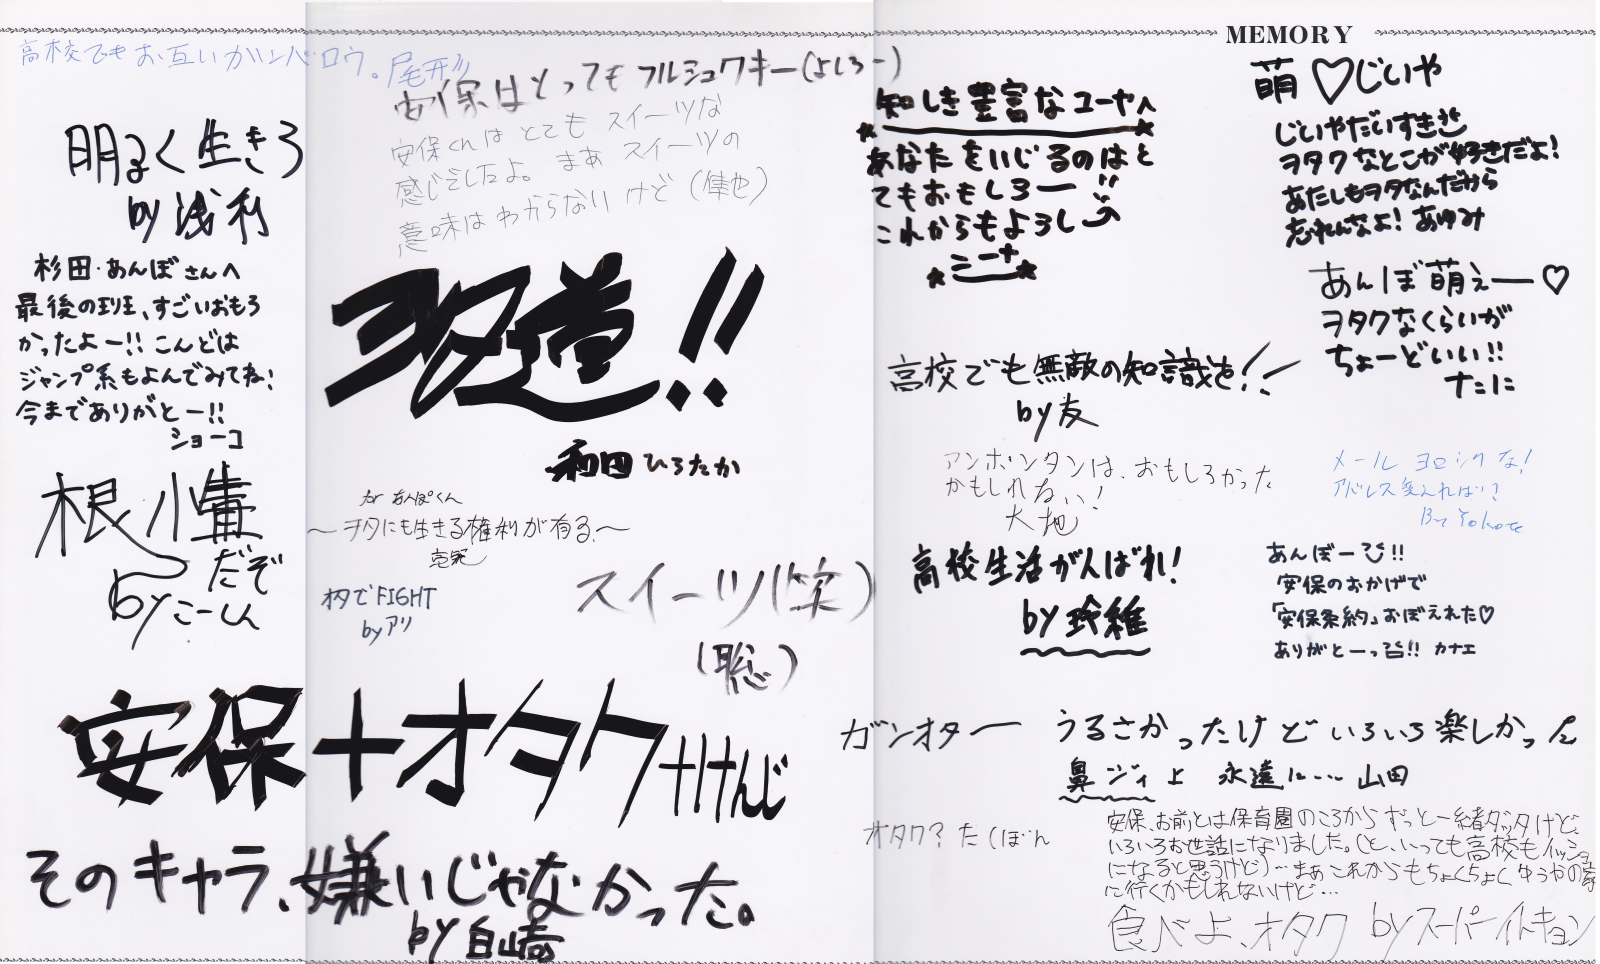 MEMORY
高校でもお互いガンバロウ。尾形
明るく生きろ
by 浅利
杉田・あんぼさんへ
最後の班、すごいおもろ
かったよー!! こんどは
ジャンプ系もよんでみてね!
今までありがとー!!
ショーコ
根
だぞ
by こーしん
安保はとってもフルシュワキー(よしろー)
安保くんはとてもスイーツな
感じでしたよ。まあスイーツの
意味はわからないけど(隼也)
ヲタ道!!
和田ひろたか
for あんぽくん
〜ヲタにも生きる権利が有る〜
オタでFIGHT
by アリ
スイーツ(笑)
(聡)
安保+オタク++けんじ
そのキャラ、嫌いじゃなかった。
by 白崎
知しき豊富なユーヤへ
あなたをいじるのはと
てもおもしろー
これからもよろし
シーナ
高校でも無敵の知識を!!
by 友
アンポンタンは、おもしろかった
かもしれない!
大地
高校生活がんばれ!
by 玲稚
ガンオター
オタク?たくぼん
萌♡じいや
じいやだいすき
ヲタクなとこが好きだよ!
あたしもヲタなんだから
忘れんなよ! あゆみ
あんぼ萌えー♡
ヲタクなくらいが
ちょーどいい!!
ナたに
メールヨロシクな!
アドレス変えれば!?
By Yokote
あんぼーび!!
安保のおかげで
「安保条約」おぼえれた♡
ありがとーっ!! カナエ
うるさかったけどいろいろ楽しかった
鼻ジィよ 永遠に… 山田
安保、お前とは保育園のころからずっと一緒ダッタけど、
いろいろお世話になりました。(と、いっても高校もイッショ
になると思うけど)…まぁこれからもちょくちょくゆうやの家
に行くかもしれないけど…
食べよ、オタク by スーパーイトキョン